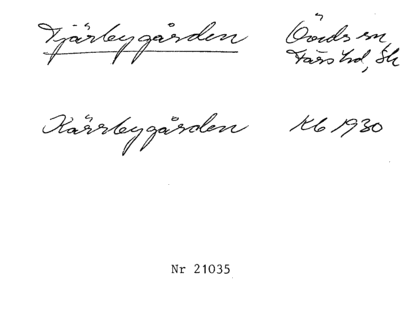 Tjärbygården Öveds sn,
Färs hd, Sk
Kärrbygården Kb 1930
Nr 21035